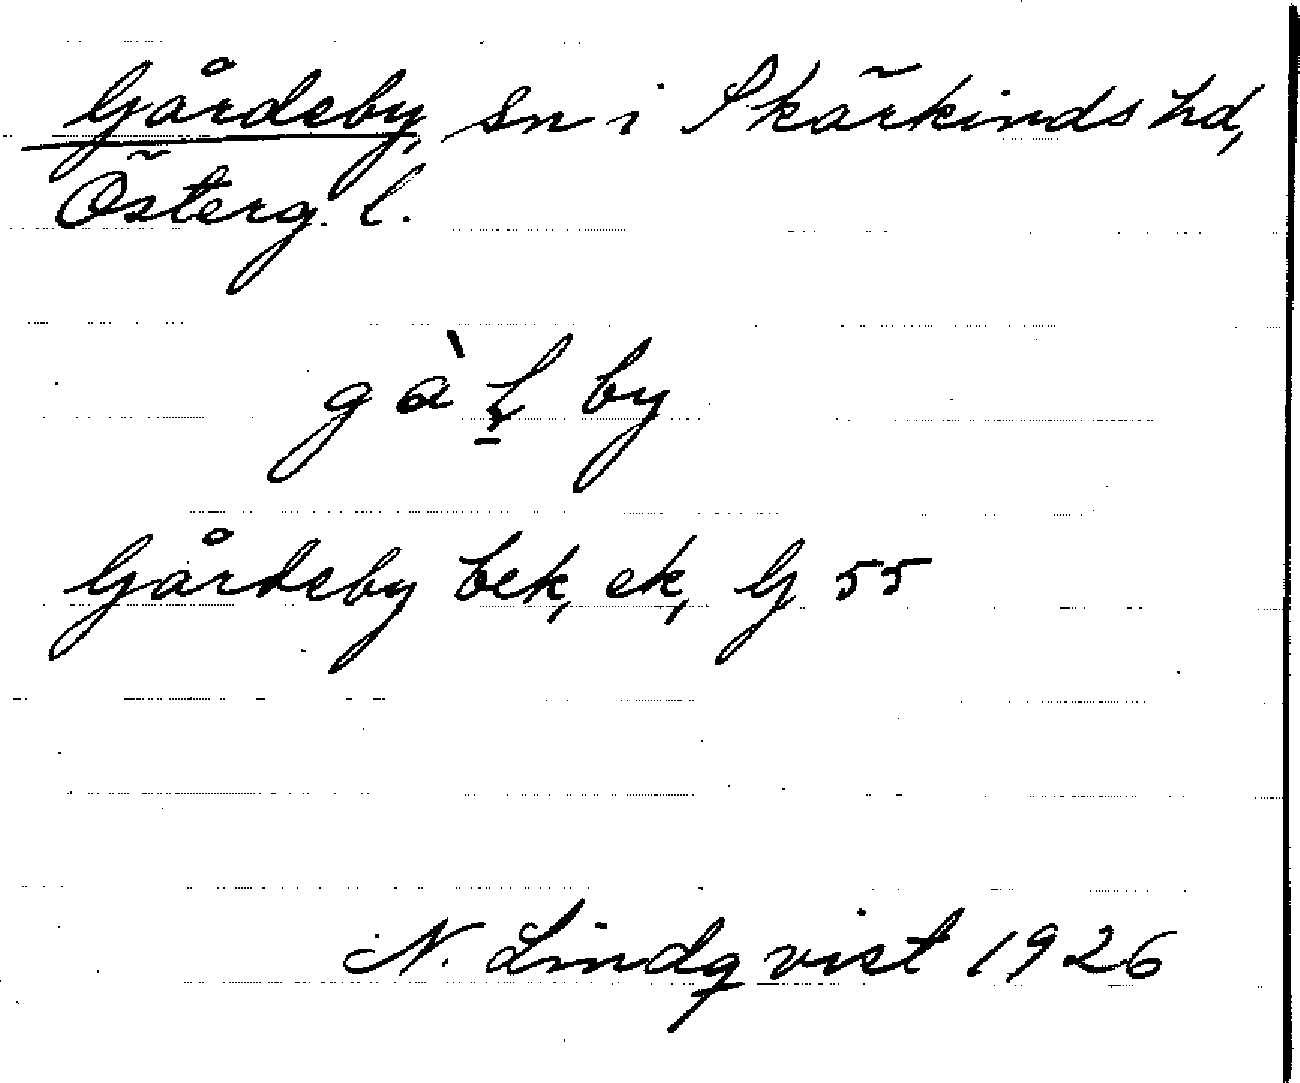 Gårdeby, sn i Skärkinds hd,
Österg. l.
by
Gårdeby bek, ek, G 55
N. Lindqvist 1926